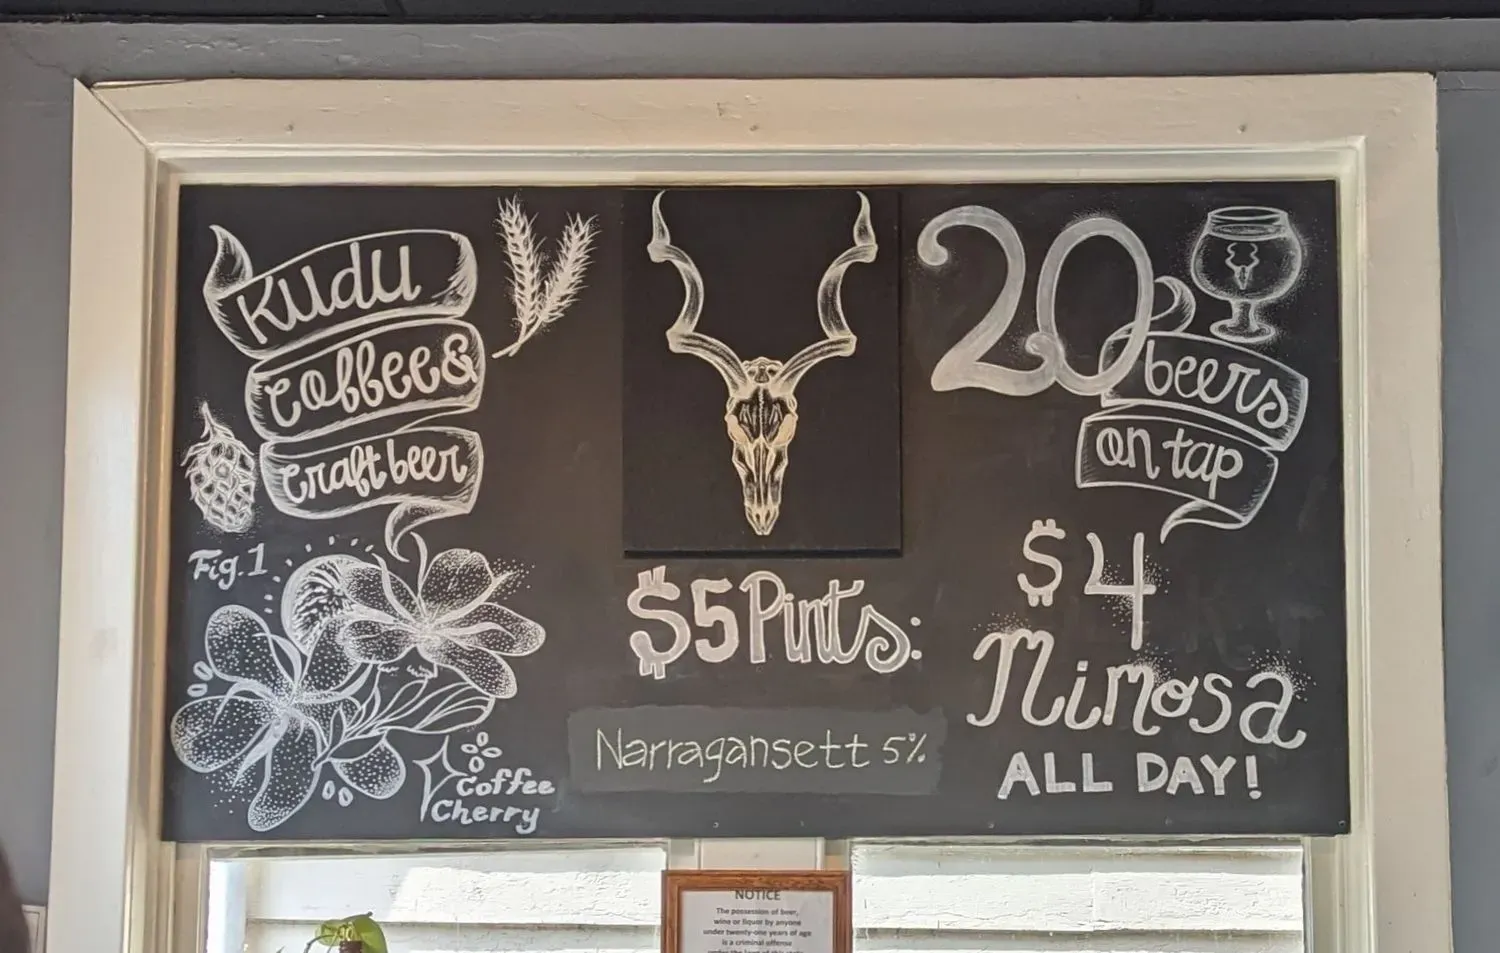 Kudu
coffee &
craft beer
Fig. 1
Coffee
Cherry
$5 Pints:
Narragansett 5%
20
beers
on tap
$4
Mimosa
ALL DAY!
NOTICE
The possession of beer,
wine or liquor by anyone
under twenty-one years of age
is a criminal offense
under the laws of this state